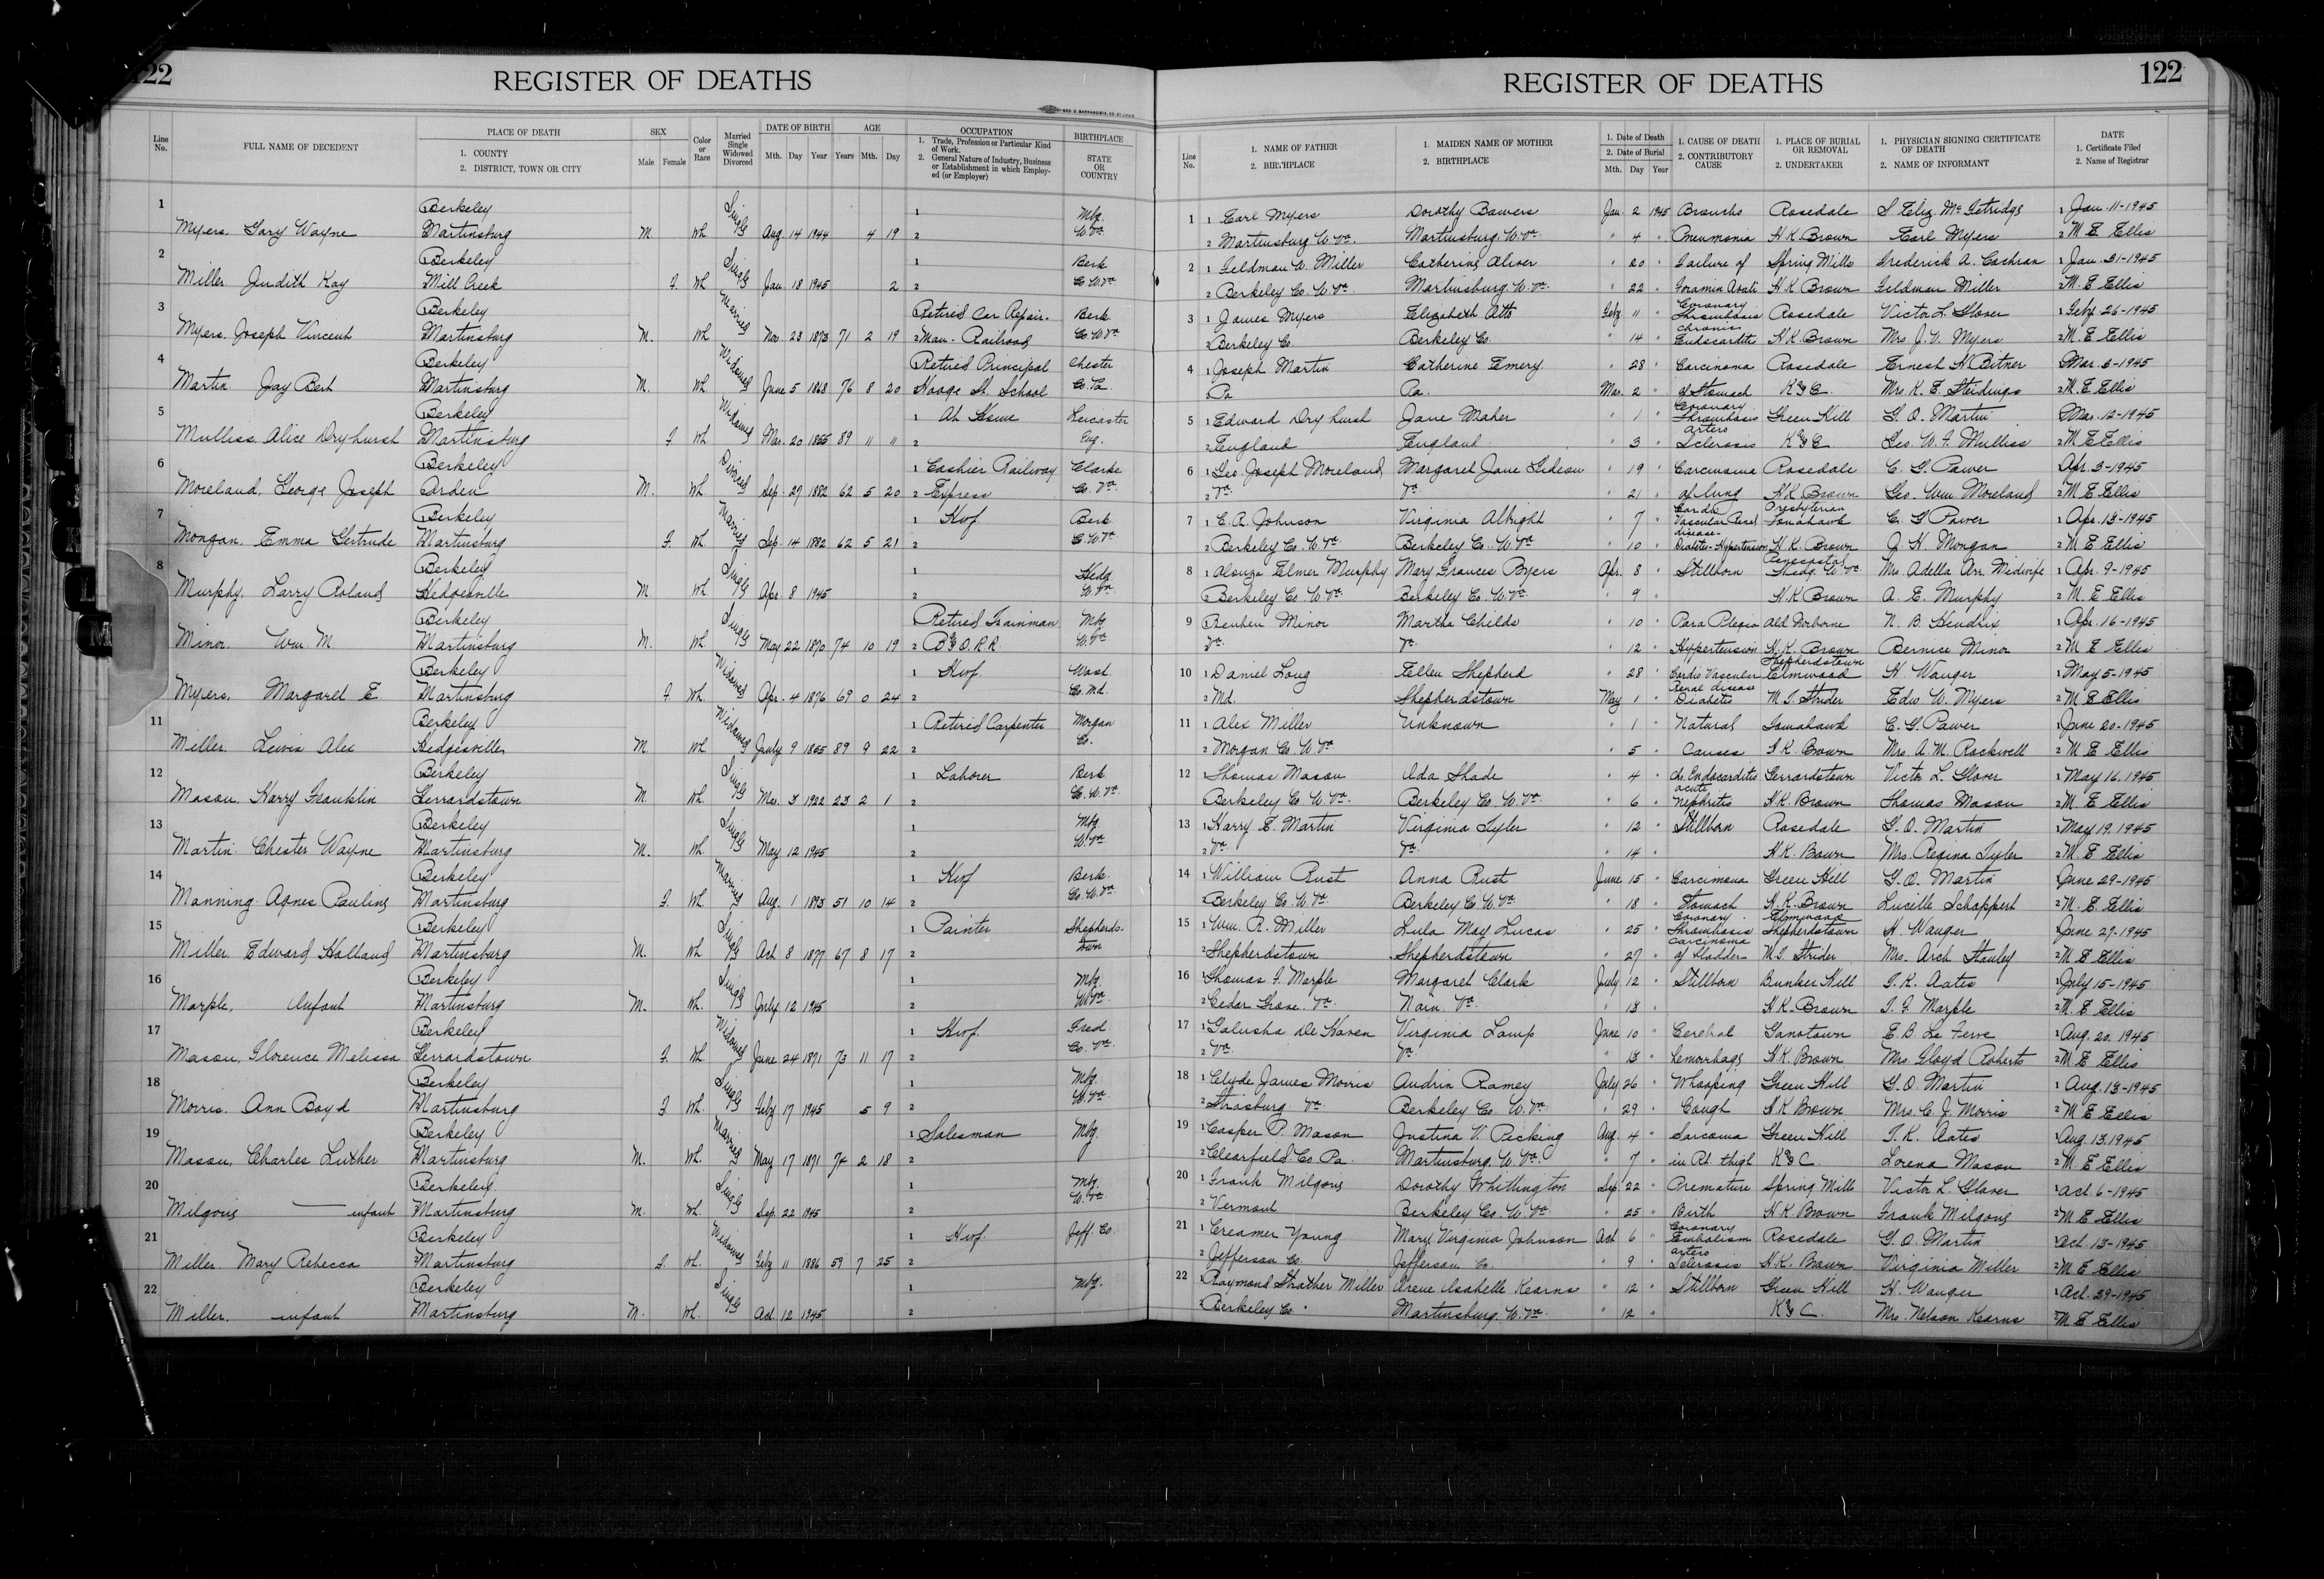 122
REGISTER OF DEATHS
Line No.
FULL NAME OF DECEDENT
PLACE OF DEATH
1. COUNTY
2. DISTRICT, TOWN OR CITY
SEX
Male Female
Color or Race
Married Single Widowed Divorced
DATE OF BIRTH
Mth. Day Year
AGE
Years Mth. Day
OCCUPATION
1. Trade, Profession or Particular Kind of Work.
2. General Nature of Industry, Business or Establishment in which Employed (or Employer)
BIRTHPLACE
STATE OR COUNTRY
1 Berkeley Single 1 Mbg.
Myers, Gary Wayne Martinsburg M. Wh. Aug 14 1944 4 19 2 W.Va.
2 Berkeley Single 1 Berk
Miller Judith Kay 2 Mill Creek F. Wh Jan 18 1945 2 2 Co. W.Va.
3 Berkeley Married Retired Car Repair- Berk
Myers, Joseph Vincent Martinsburg M. Wh Nov 23 1873 71 2 19 2 Man - Railroad Co. W.Va.
4 Berkeley Widowed Retired Principal Chester
Martin Jay Bert Martinsburg M. Wh June 5 1868 76 8 20 Hooge St. School Co. Pa.
5 Berkeley Widowed 1 At Home
Mulliss, Alice Dryhurst Martinsburg F. Wh Mar. 20 1855 89 11 11 2 Eng.
6 Berkeley Divorced 1 Cashier Railway Clarke
Moreland, George Joseph Arden M. Wh. Sep 27 1882 62 5 20 2 Express Co. Va.
7 Berkeley Married 1 Hwf. Berk
Mongan, Emma Gertrude Martinsburg F. Wh. Sep 14 1882 62 5 21 2 Co. W.Va.
8 Berkeley Single 1 Hedg.
Murphy, Larry Roland Hedgesville M Wh Apr. 8 1945 2 W.Va.
9 Berkeley Single Retired Trainman Mbg
Minor. Wm. M Martinsburg M. Wh May 22 1870 74 10 19 2 B&O. R.R. W.Va.
10 Berkeley Widowed 1 Hwf. Wash.
Myers, Margaret E Martinsburg F. Wh. Apr. 4 1876 69 0 24 2 Co. Md.
11 Berkeley Widowed 1 Retired Carpenter Morgan
Miller. Lewis Alex Hedgesville M Wh July 9 1855 89 9 22 2 Co.
12 Berkeley Single 1 Laborer Berk
Mason, Harry Franklin Gerrardstown M. Wh. Mar. 3 1922 23 2 1 2 Co. W.Va.
13 Berkeley Single 1 Mbg.
Martin Chester Wayne Martinsburg M. Wh. May 12 1945 2 W.Va.
14 Berkeley Married 1 Hwf Berk.
Manning Agnes Pauline Martinsburg F. Wh. Aug. 1 1893 51 10 14 2 Co. W.Va.
15 Berkeley Single 1 Painter Shepherds-
Miller. Edward Holland Martinsburg M. Wh Oct 8 1877 67 8 17 2 town
16 Berkeley Single 1 Mbg.
Marple, Infant Martinsburg M. Wh. July 12 1945 2 W.Va.
17 Berkeley Widowed 1 Hwf. Fred.
Mason, Florence Melissa Gerrardstown F. Wh. June 24 1871 73 11 17 2 Co. Va.
18 Berkeley Single 1 Mbg.
Morris. Ann Boyd Martinsburg F Wh. Feby 17 1945 5 9 2 W.Va.
19 Berkeley Married 1 Salesman Mbg.
Mason, Charles Luther Martinsburg M. Wh. May 17 1871 74 2 18 2
20 Berkeley Single 1 Mbg.
Milgous — infant Martinsburg M. Wh. Sep. 22 1945 2 W.Va.
21 Berkeley Widowed 1 Hwf. Jeff. Co.
Miller Mary Rebecca Martinsburg F. Wh. Feby 11 1886 59 7 25 2
22 Berkeley Single 1 Mbg.
Miller, infant Martinsburg M. Wh. Oct. 12 1945 2
122
REGISTER OF DEATHS
Line No.
1. NAME OF FATHER
2. BIRTHPLACE
1. MAIDEN NAME OF MOTHER
2. BIRTHPLACE
1. Date of Death
2. Date of Burial
Mth. Day Year
1. CAUSE OF DEATH
2. CONTRIBUTORY CAUSE
1. PLACE OF BURIAL OR REMOVAL
2. UNDERTAKER
1. PHYSICIAN SIGNING CERTIFICATE OF DEATH
2. NAME OF INFORMANT
DATE
1. Certificate Filed
2. Name of Registrar
1 1 Earl Myers Dorothy Bowers Jan. 2 1945 Broncho Rosedale S Eliz. McFetridge 1 Jan. 11-1945
2 Martinsburg W.Va. Martinsburg. W.Va. " 4 " Pneumonia H.K. Brown Earl Myers 2 M E Ellis
2 1 Feldman W. Miller Catherine Oliver " 20 " Failure of Spring Mills Frederick A. Cochran 1 Jan. 31-1945
2 Berkeley Co. W.Va. Martinsburg. W.Va. " 22 " Foramin Ovati H.K. Brown Feldman Miller 2 M. E Ellis
3 1 James Myers Elizabeth Otto Feby 11 " Coronary Thrombosis Rosedale Victor L. Glover 1 Feby 26-1945
2 Berkeley Co. Berkeley Co. " 14 " Chronic Endocarditis H.K. Brown Mrs J.V. Myers 2 M. E Ellis
4 1 Joseph Martin Catherine Emery " 28 " Carcinoma Rosedale Ernest H Bitner Mar. 6-1945
2 Pa Pa. Mar. 2 " of Stomach K&C Mrs K. E. 2 M. E Ellis
5 1 Edward Dryhurst Jane Maher " 1 " Coronary Thrombosis Green Hill G. O. Martin Mar. 12-1945
2 England England " 3 " Arterio Sclerosis K&C Geo. W. F. Mulliss 2 M E Ellis
6 1 Geo. Joseph Moreland Margaret Jane Gideon " 19 " Carcinoma Rosedale C. G. Power Apr. 3-1945
2 Va. Va " 21 " of lung H.K. Brown Geo. Wm. Moreland 2 M E Ellis
7 1 E. R. Johnson Virginia Albright " 7 " Cardio Vascular Renal disease Presbyterian Tomahawk C. G Power 1 Apr. 13-1945
2 Berkeley Co. W.Va. Berkeley Co. W.Va " 10 " Diabetes-Hypertension H.K. Brown J. H. Mongan 2 M E Ellis
8 1 Alonza Elmer Murphy Mary Frances Byers Apr. 8 " Stillborn Pentecostal Hedg. W.Va. Mrs Adella Orr Midwife 1 Apr. 9-1945
2 Berkeley Co. W.Va. Berkeley Co. W.Va. " 9 " H.K. Brown A. E. Murphy 2 M. E Ellis
9 Reuben Minor Martha Childs " 10 " Para Plegia Old Norborne N. B. Hendrix 1 Apr. 16-1945
Va. Va. " 12 " Hypertension H.K. Brown Bernice Minor 2 M E Ellis
10 1 Daniel Long Ellen Shepherd " 28 " Cardio Vascular Shepherdstown Elmwood H. Wanger 1 May 5-1945
2 Md. Shepherdstown May 1 " Renal disease Diabetes M.T. Strider Edw W. Myers 2 M E Ellis
11 1 Alex Miller Unknown " 1 " Natural Tomahawk C. G. Power 1 June 20-1945
2 Morgan Co. W.Va. " 5 " Causes H.K. Brown Mrs. A. M. Rockwell 2 M E Ellis
12 Thomas Mason Ada Shade " 4 " ch. Endocarditis Gerrardstown Victor L. Glover 1 May 16. 1945
Berkeley Co. W.Va. Berkeley Co. W.Va. " 6 " acute Nephritis H.K. Brown Thomas Mason 2 M. E Ellis
13 1 Harry E. Martin Virginia Tyler " 12 " Stillborn Rosedale G. O. Martin 1 May 19. 1945
2 Va. Va " 14 " H.K. Brown Mrs. Regina Tyler 2 M. E Ellis
14 1 William Rust Anna Rust June 15 " Carcinoma Green Hill G. O. Martin June 29-1945
Berkeley Co. W.Va. Berkeley Co W.Va. " 18 " Stomach H.K. Brown Lucille Schoppert 2 M. E. Ellis
15 1 Wm. R. Miller Lula May Lucas " 25 " Coronary Thrombosis Elmwood Shepherdstown H. Wanger June 27-1945
2 Shepherdstown Shepherdstown " 27 " carcinoma of bladder M.T. Strider Mrs. Arch Stanley 2 M E Ellis
16 1 Thomas F. Marple Margaret Clark July 12 " Stillborn Bunker Hill T. K. Oates 1 July 15-1945
2 Cedar Grove. Va. Nain. Va. " 13 " H.K. Brown T. F. Marple 2 M. E Ellis
17 1 Galusha De Haven Virginia Lamp June 10 " Cerebral Ganotown E. B. Le Fevre 1 Aug. 20. 1945
2 Va. Va. " 13 " hemorrhage H.K. Brown Mrs. Floyd Roberts 2 M. E Ellis
18 1 Clyde James Morris Audrin Ramey July 26 " Whooping Green Hill G. O. Martin 1 Aug. 13-1945
2 Strasburg. Va Berkeley Co. W.Va. " 29 " Cough H.K. Brown Mrs. C. J. Morris 2 M E Ellis
19 1 Casper P. Mason Justina V. Picking Aug. 4 " Sarcoma Green Hill T. K. Oates 1 Aug 13. 1945
2 Clearfield. Co Pa. Martinsburg. W.Va. " 7 " in Rt. thigh K&C Lorena Mason 2 M E Ellis
20 1 Frank Milgous Dorothy Whittington Sep 22 " Premature Spring Mills Victor L. Glover 1 Oct 6-1945
2 Vermont Berkeley Co. W.Va. " 25 " Birth H.K. Brown Frank Milgous 2 M E Ellis
21 1 Creamer Young Mary Virginia Johnson Oct 6 " Coronary Embolism Rosedale G. O. Martin 1 Oct. 13-1945
2 Jefferson Co. Jefferson Co. " 9 " arterio Sclerosis H.K. Brown Virginia Miller 2 M E Ellis
22 1 Raymond Strather Miller Irene Isabelle Kearns " 12 " Stillborn Green Hill H. Wanger 1 Oct. 29-1945
2 Berkeley Co. Martinsburg. W.Va. " 12 " K&C. Mrs. Nelson Kearns 2 M E Ellis